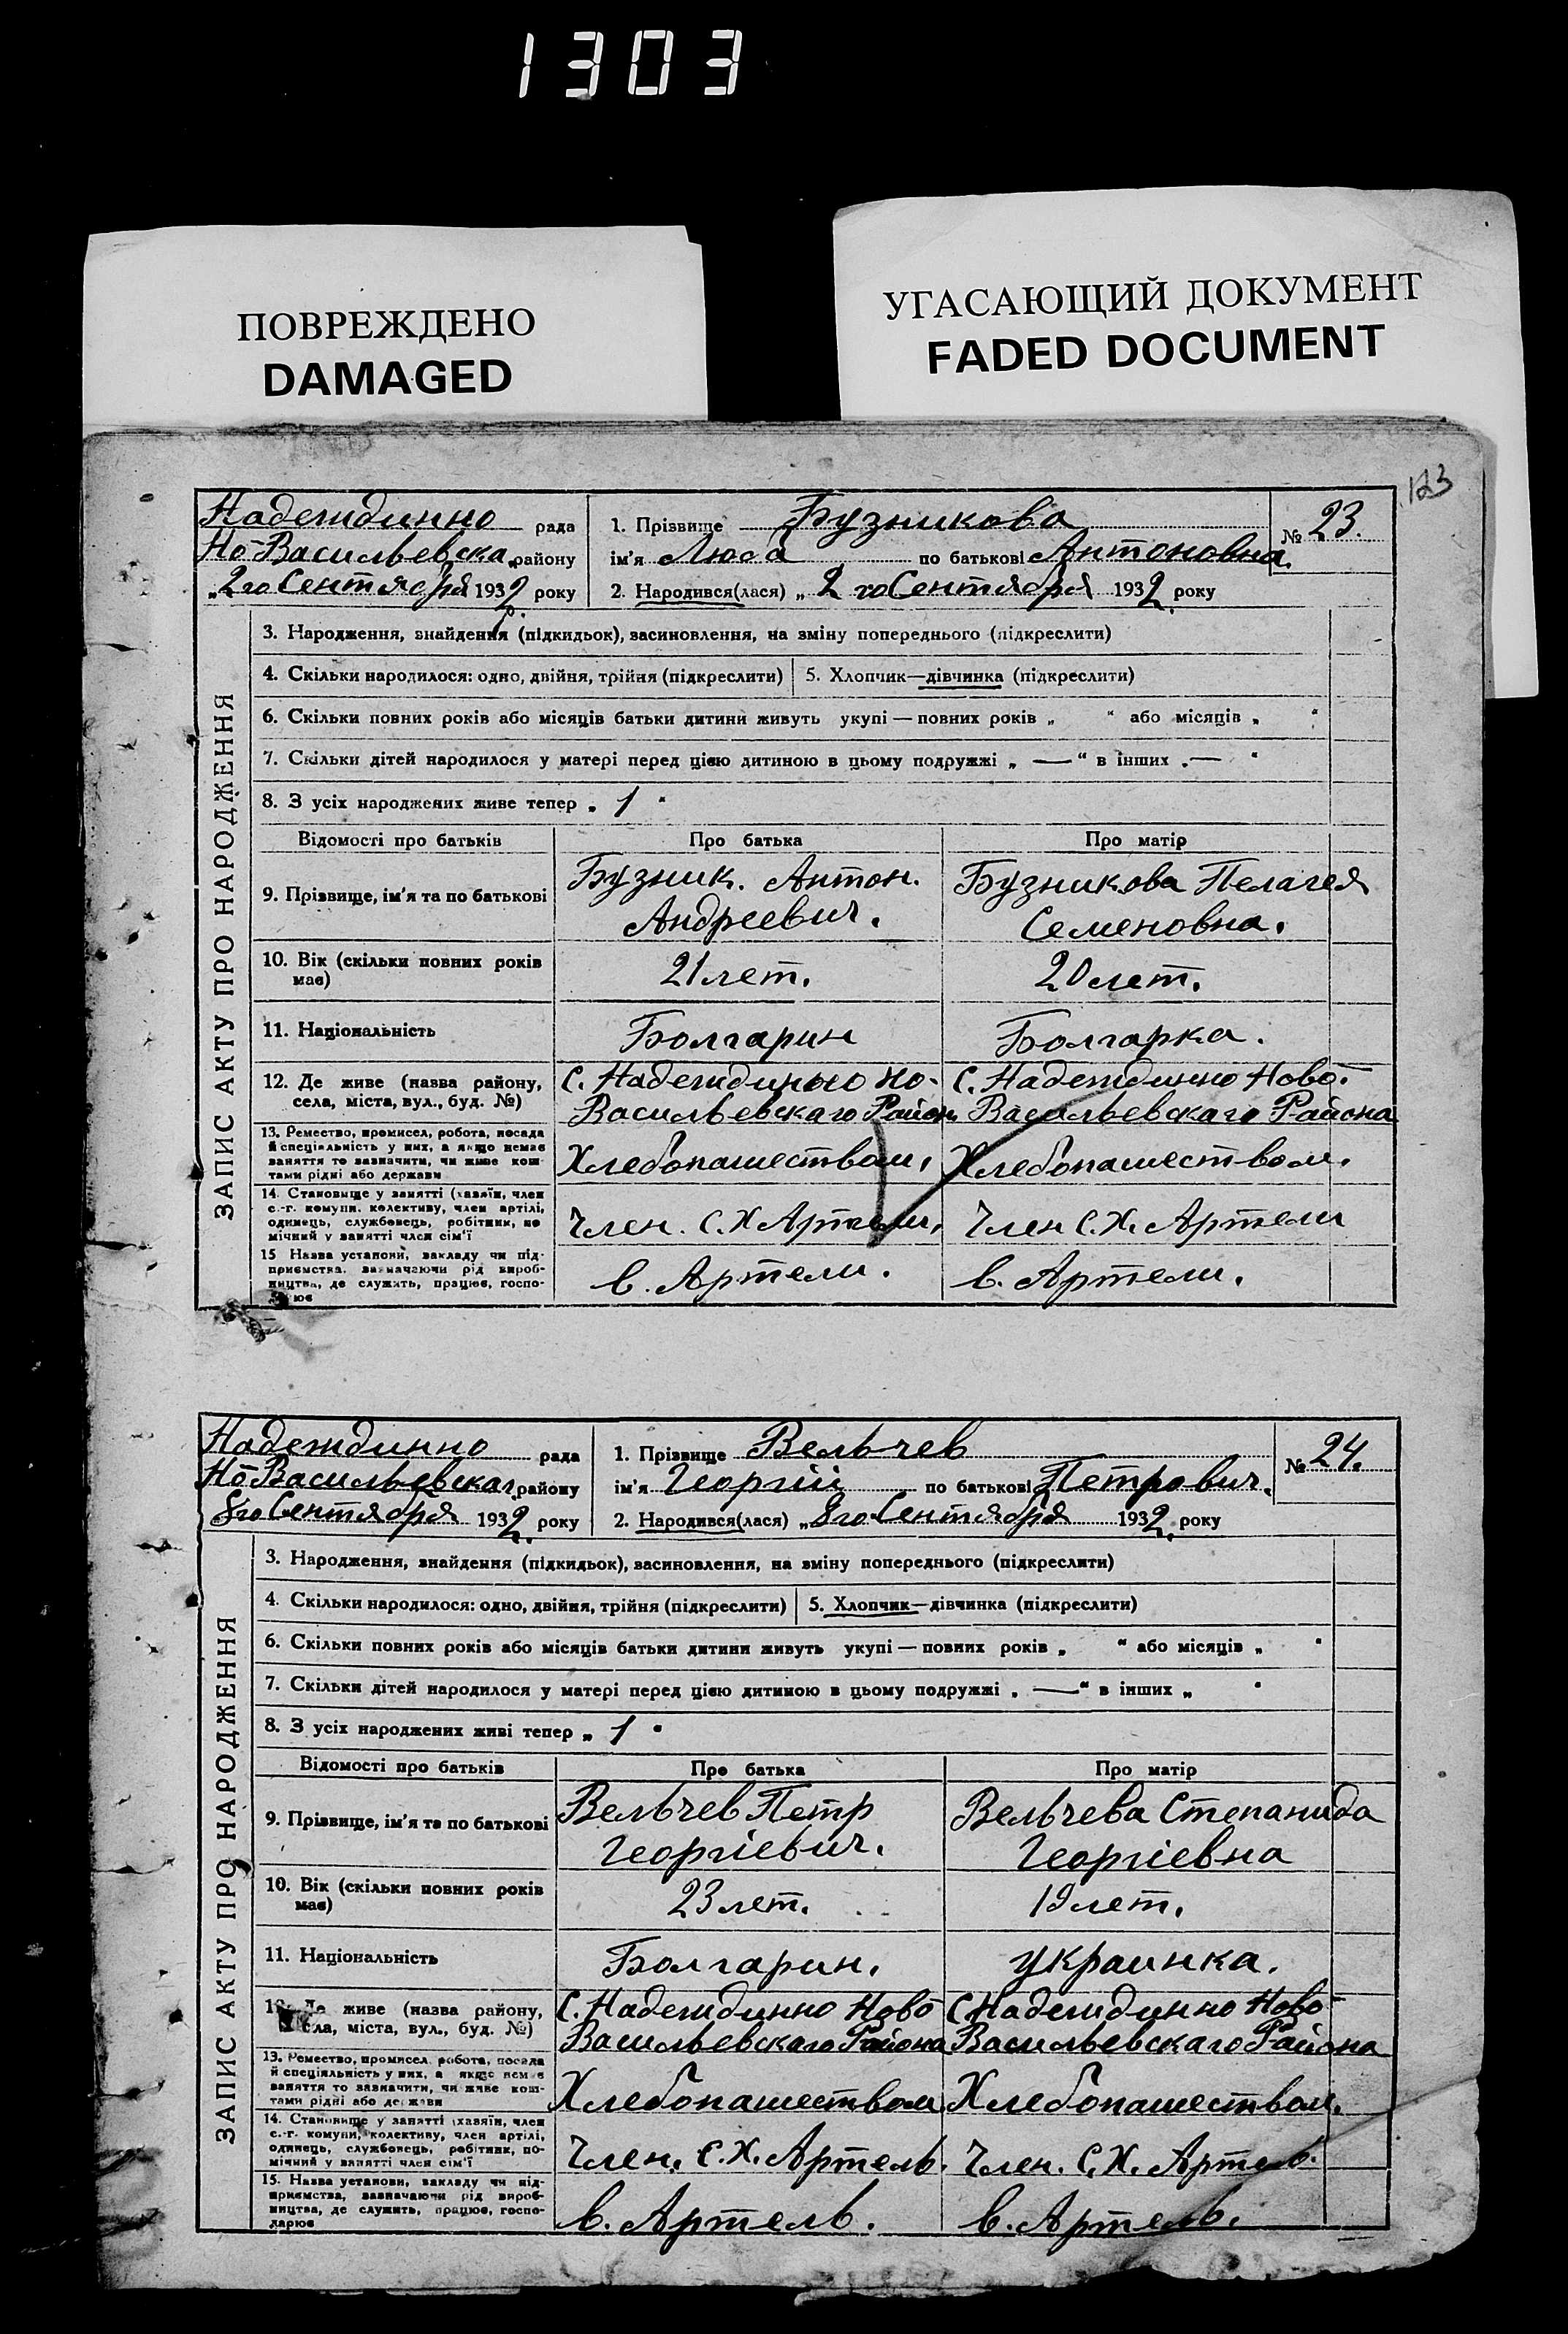 1303
ПОВРЕЖДЕНО
DAMAGED
УГАСАЮЩИЙ ДОКУМЕНТ
FADED DOCUMENT
123
Надеждинно рада
Но-Васильевска району
„2го Сентября 1932 року
р.
1. Прізвище Бузникова
ім'я Люба по батькові Антоновна.
2. Народився(лася) „ 2 го Сентября 1932. року
№ 23.
ЗАПИС АКТУ ПРО НАРОДЖЕННЯ
3. Народження, знайдення (підкидьок), засиновлення, на зміну попереднього (підкреслити)
4. Скільки народилося: одно, двійня, трійня (підкреслити) 5. Хлопчик—дівчинка (підкреслити)
6. Скільки повних років або місяців батьки дитини живуть укупі — повних років „ “ або місяців „ “
7. Скільки дітей народилося у матері перед цією дитиною в цьому подружжі „ — “ в інших „ — “
8. З усіх народжених живе тепер „ 1 “
Відомості про батьків Про батька Про матір
9. Прізвище, ім'я та по батькові
Бузник. Антон.
Андреевич.
Бузникова Пелагея
Семеновна.
10. Вік (скільки повних років
має)
21 лет.
20 лет.
11. Національність
Болгарин
Болгарка.
12. Де живе (назва району,
села, міста, вул., буд. №)
С. Надеждинно Но-
Васильевскаго Район.
С. Надеждинно Ново-
Васильевскаго Района
13. Ремество, промисел, робота, посада
й спеціяльність у них, а якщо немає
заняття то зазначити, чи живе кош-
тами рідні або держави
Хлебопашеством.
Хлебопашеством.
14. Становище у занятті (хазяїн, член
с.-г. комуни, колективу, член артілі,
одинець, службовець, робітник, по
мічний у занятті член сім'ї
Член. С. Х Артели.
Член С. Х. Артели
15 Назва установи, закладу чи під-
приємства, зазначаючи рід вироб-
ництва, де служить, працює, госпо-
рює
в. Артели.
в. Артели.
Надеждинно рада
Но-Васильевскаг. району
8го Сентября 1932. року
1. Прізвище Вельчев
ім'я Георгій по батькові Петрович.
2. Народився(лася) „8го Сентября 1932. року
№ 24.
ЗАПИС АКТУ ПРО НАРОДЖЕННЯ
3. Народження, знайдення (підкидьок), засиновлення, на зміну попереднього (підкреслити)
4. Скільки народилося: одно, двійня, трійня (підкреслити) 5. Хлопчик—дівчинка (підкреслити)
6. Скільки повних років або місяців батьки дитини живуть укупі — повних років „ “ або місяців „ “
7. Скільки дітей народилося у матері перед цією дитиною в цьому подружжі „ — “ в інших „ “
8. З усіх народжених живі тепер „ 1 “
Відомості про батьків Про батька Про матір
9. Прізвище, ім'я та по батькові
Вельчев Петр
Георгіевич.
Вельчева Степанида
Георгіевна
10. Вік (скільки повних років
має)
23 лет.
19 лет.
11. Національність
Болгарин.
украинка.
12. Де живе (назва району,
села, міста, вул., буд. №)
С. Надеждинно Ново
Васильевскаго Района
С. Надеждинно Ново-
Васильевскаго Района
13. Ремество, промисел, робота, посада
й спеціяльність у них, а якщо немає
заняття то зазначити, чи живе кош-
тами рідні або держави
Хлебопашеством
Хлебопашеством.
14. Становище у занятті (хазяїн, член
с.-г. комуни, колективу, член артілі,
одинець, службовець, робітник, по-
мічний у занятті член сім'ї
Член. С. Х. Артель.
Член. С. Х. Артель.
15. Назва установи, закладу чи під-
приємства, зазначаючи рід вироб-
ництва, де служить, працює, госпо-
дарює
в. Артель.
в. Артель.